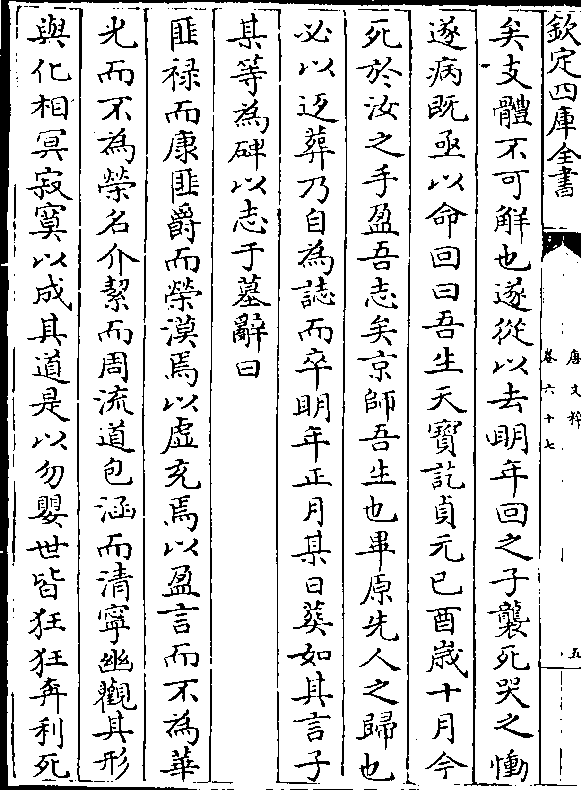 欽定四庫全書
唐文粹
卷六十七
五
矣支體不可解也遂從以去明年回之子襲死哭之慟
遂病既亟以命回曰吾生天寶訖貞元已酉歲十月今
死於汝之手盈吾志矣京師吾生也畢原先人之歸也
必以返葬乃自為誌而卒明年正月某日葬如其言子
某等為碑以志于墓辭曰
匪禄而康匪爵而榮漠焉以虛充焉以盈言而不為華
光而不為榮名介㓗而周流道包涵而清寧幽觀其形
與化相冥寂寞以成其道是以勿嬰世皆狂狂奔利死